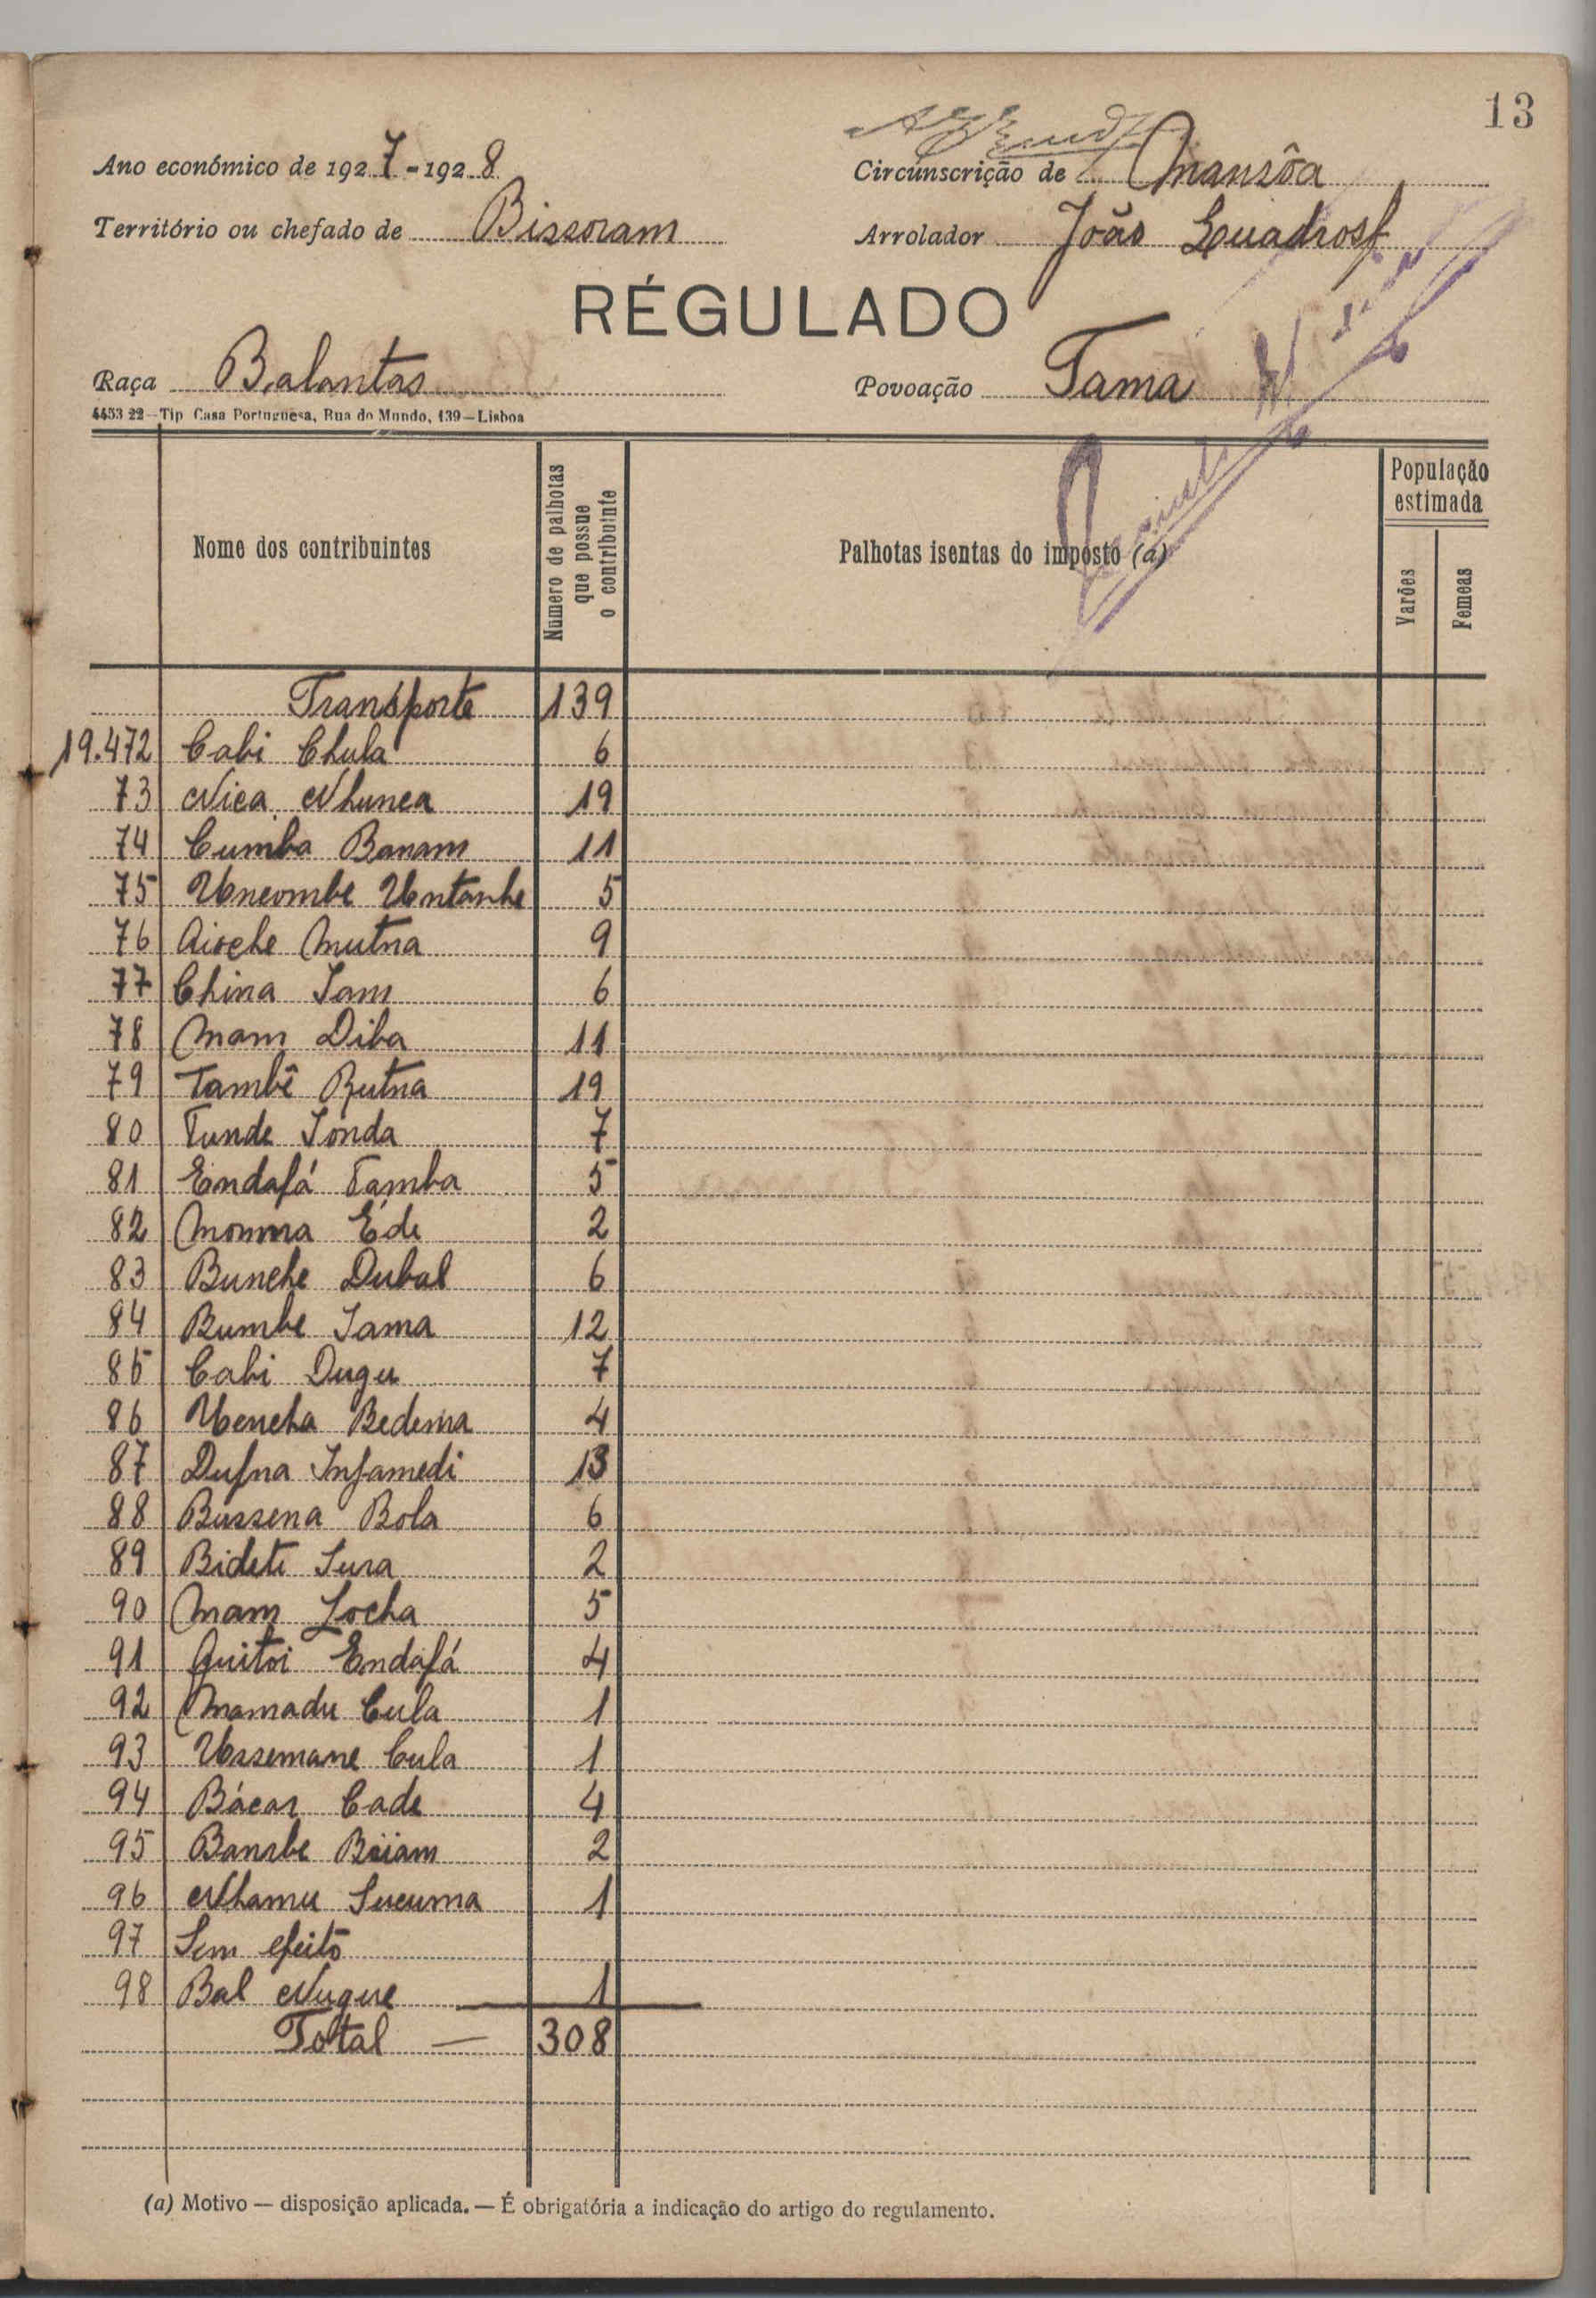 13
Ano económico de 1927-1928
Circunscrição de Mansôa
Território ou chefado de Bissoram
Arrolador João Quadros
RÉGULADO
Raça Balantas
Povoação Tama
4453 22—Tip Casa Portuguesa, Rua do Mundo, 139—Lisboa
Nome dos contribuintes
Número de palhotas que possue o contribuinte
Palhotas isentas do imposto (a)
População estimada
Varões
Femeas
Transporte 139
19.472 Cabi Chula 6
73 Nica Nhunca 19
74 Cumba Banam 11
75 Uncombe Untanhe 5
76 Aioche Mutna 9
77 China Sam 6
78 Mam Diba 11
79 Tambê Rutna 19
80 Tunde Sonda 7
81 Endafá Tamba 5
82 Momma Éde 2
83 Bunche Dubal 6
84 Bumbe Sama 12
85 Cabi Dugu 7
86 Uencha Bedema 4
87 Dufna Infamedi 13
88 Bussena Bola 6
89 Bidete Sura 2
90 Mam Locha 5
91 Quitoi Endafá 4
92 Mamadu Cula 1
93 Ussemane Cula 1
94 Bácar Cade 4
95 Bansbe Biiam 2
96 Nhamu Sucuma 1
97 Sem efeito
98 Bal Nugue 1
Total — 308
(a) Motivo — disposição aplicada. — É obrigatória a indicação do artigo do regulamento.